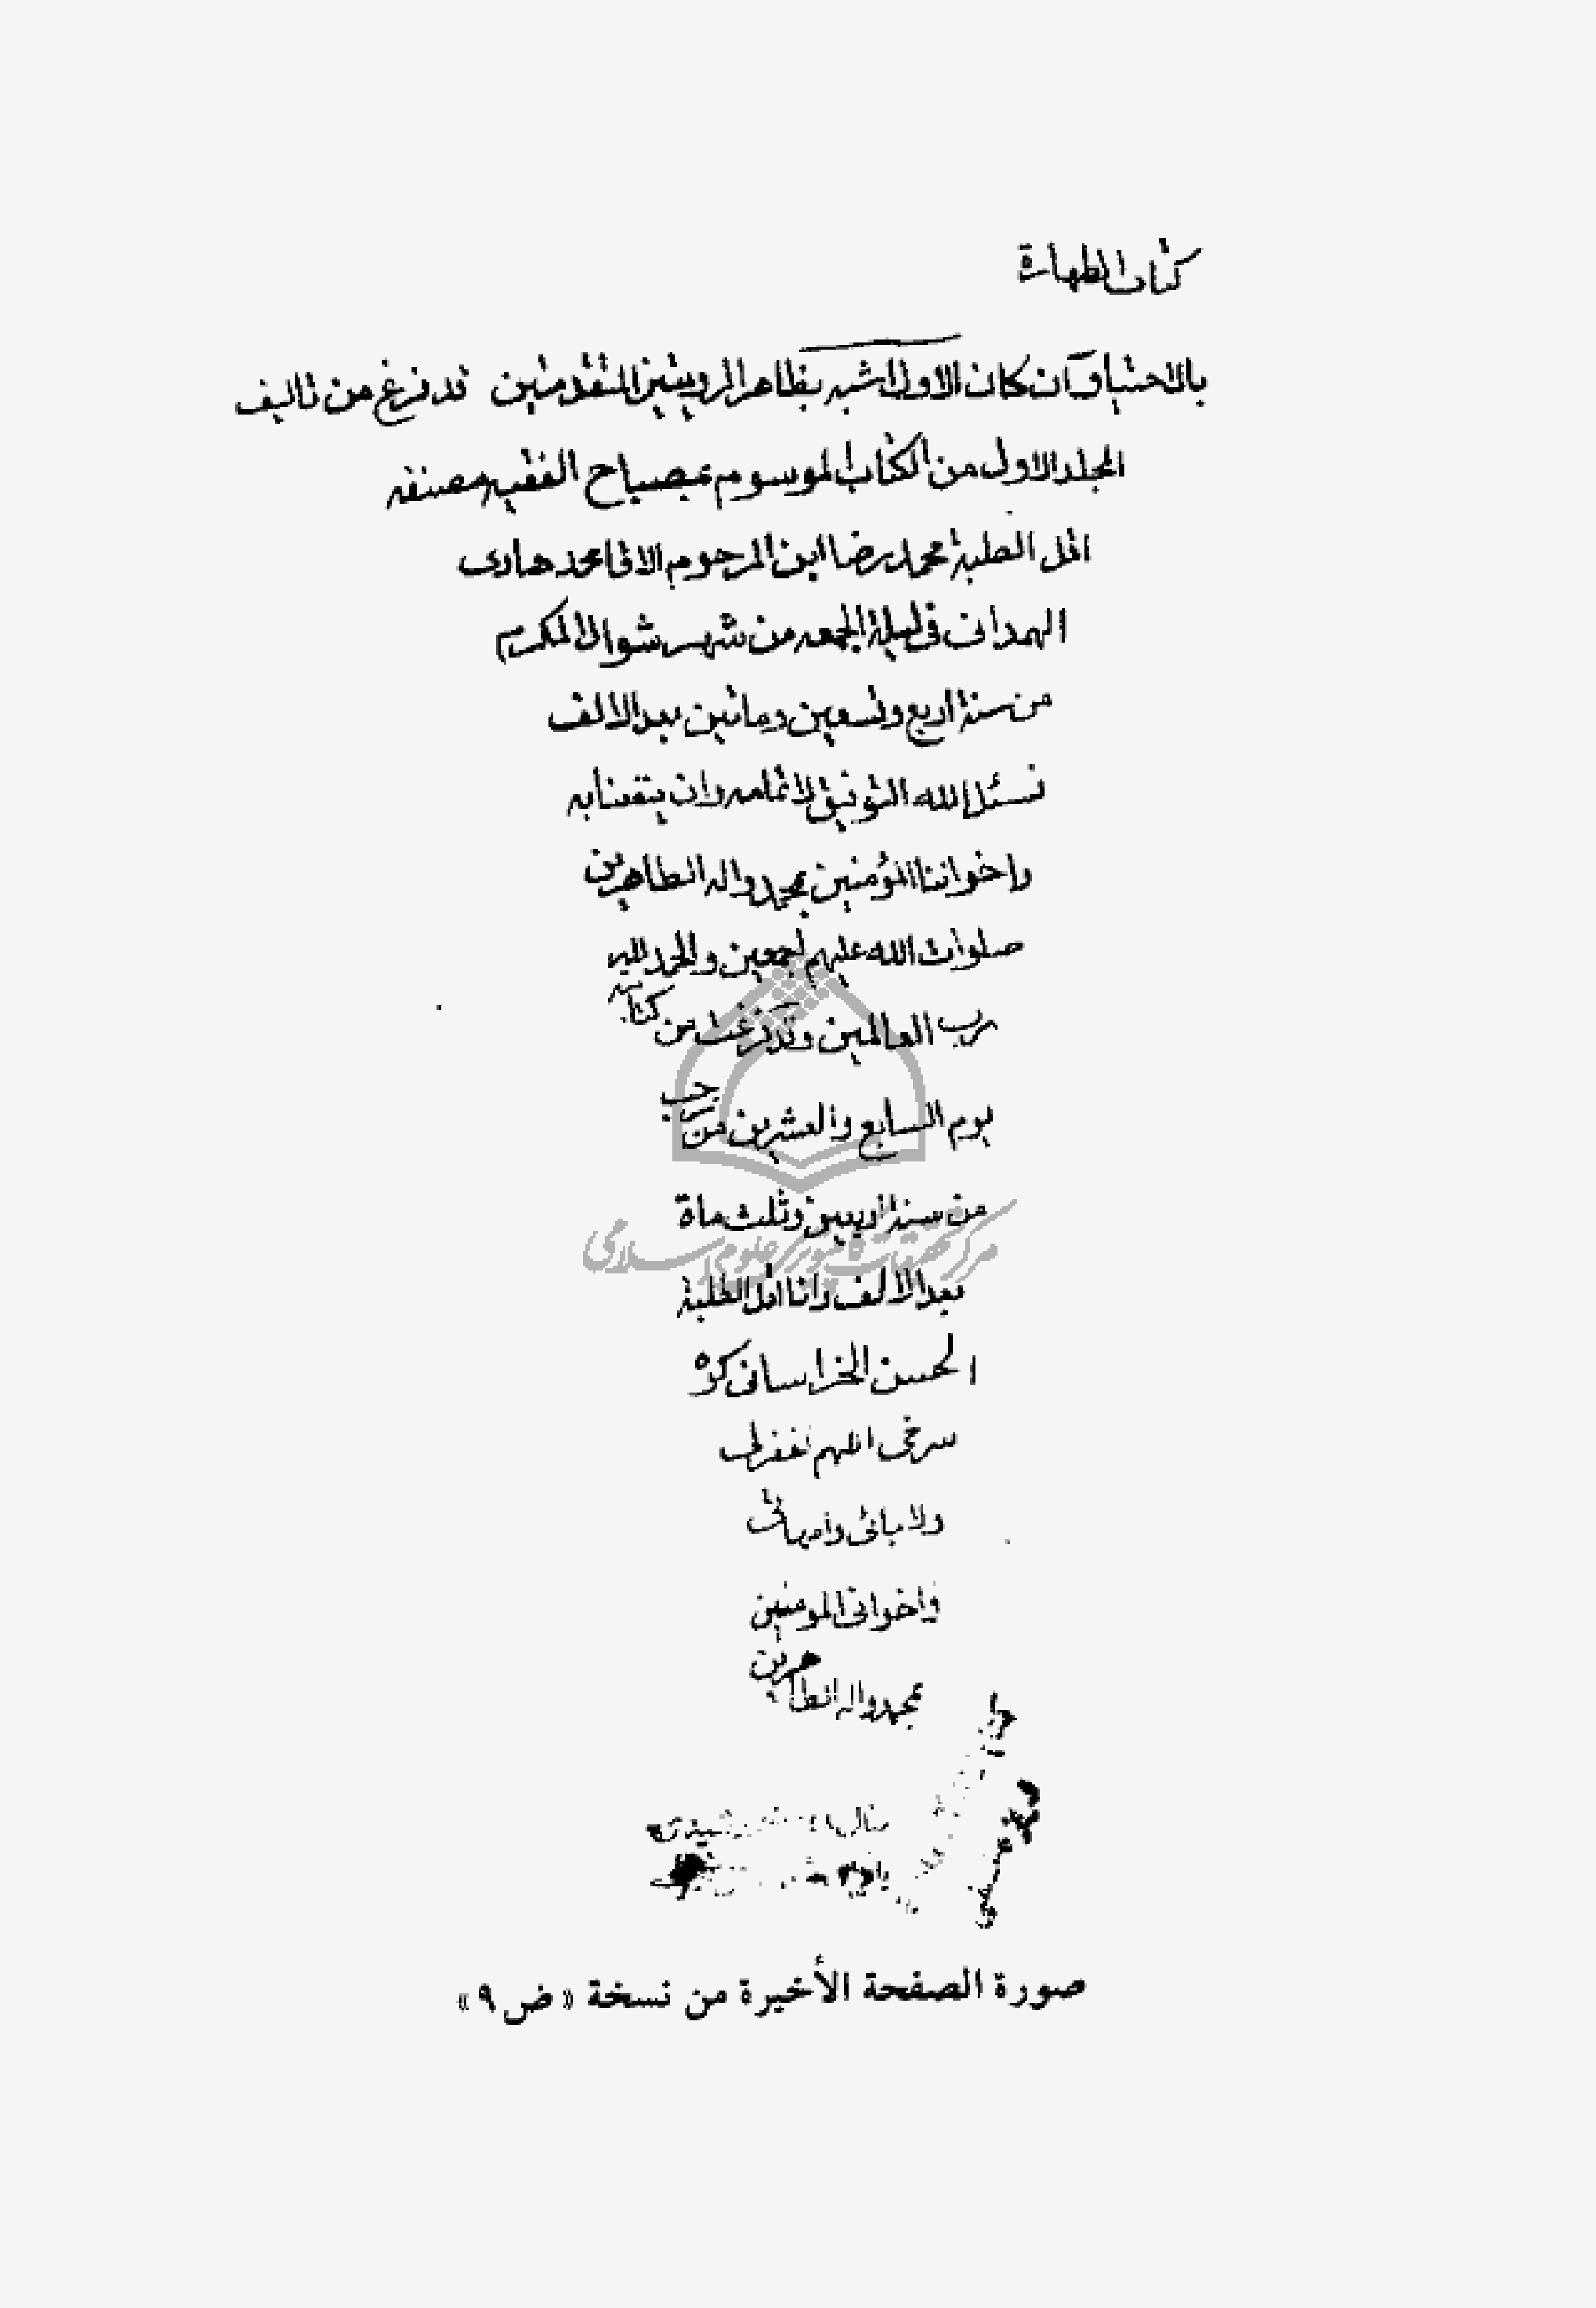 كتاب الطهارة
بالاحتياط وان كان الاول اشبه بظاهر الروايتين المتقدمتين قد فرغ من تاليف
المجلد الاول من الكتاب الموسوم بمصباح الفقيه مصنفه
اقل الطلبة محمد رضا ابن المرحوم الاقا محمد هادى
الهمدانى فى ليلة الجمعه من شهر شوال المكرم
من سنة اربع وتسعين ومأتين بعد الالف
نسئل الله التوفيق لاتمامه وان ينفعنا به
واخواننا المؤمنين بمحمد واله الطاهرين
صلوات الله عليهم اجمعين والحمد لله
رب العالمين وقد فرغت من كتابته
يوم السابع والعشرين من رجب
من سنة اربعين وثلث ماة
بعد الالف وانا اقل الطلبة
الحسن الخراسانى كوه
سرخى اللهم اغفر لى
ولابائى وامهاتى
واخوانى المومنين
بمحمد واله الطاهرين
مركز تحقيقات كامپيوترى علوم اسلامى
صورة الصفحة الأخيرة من نسخة «ض ٩»